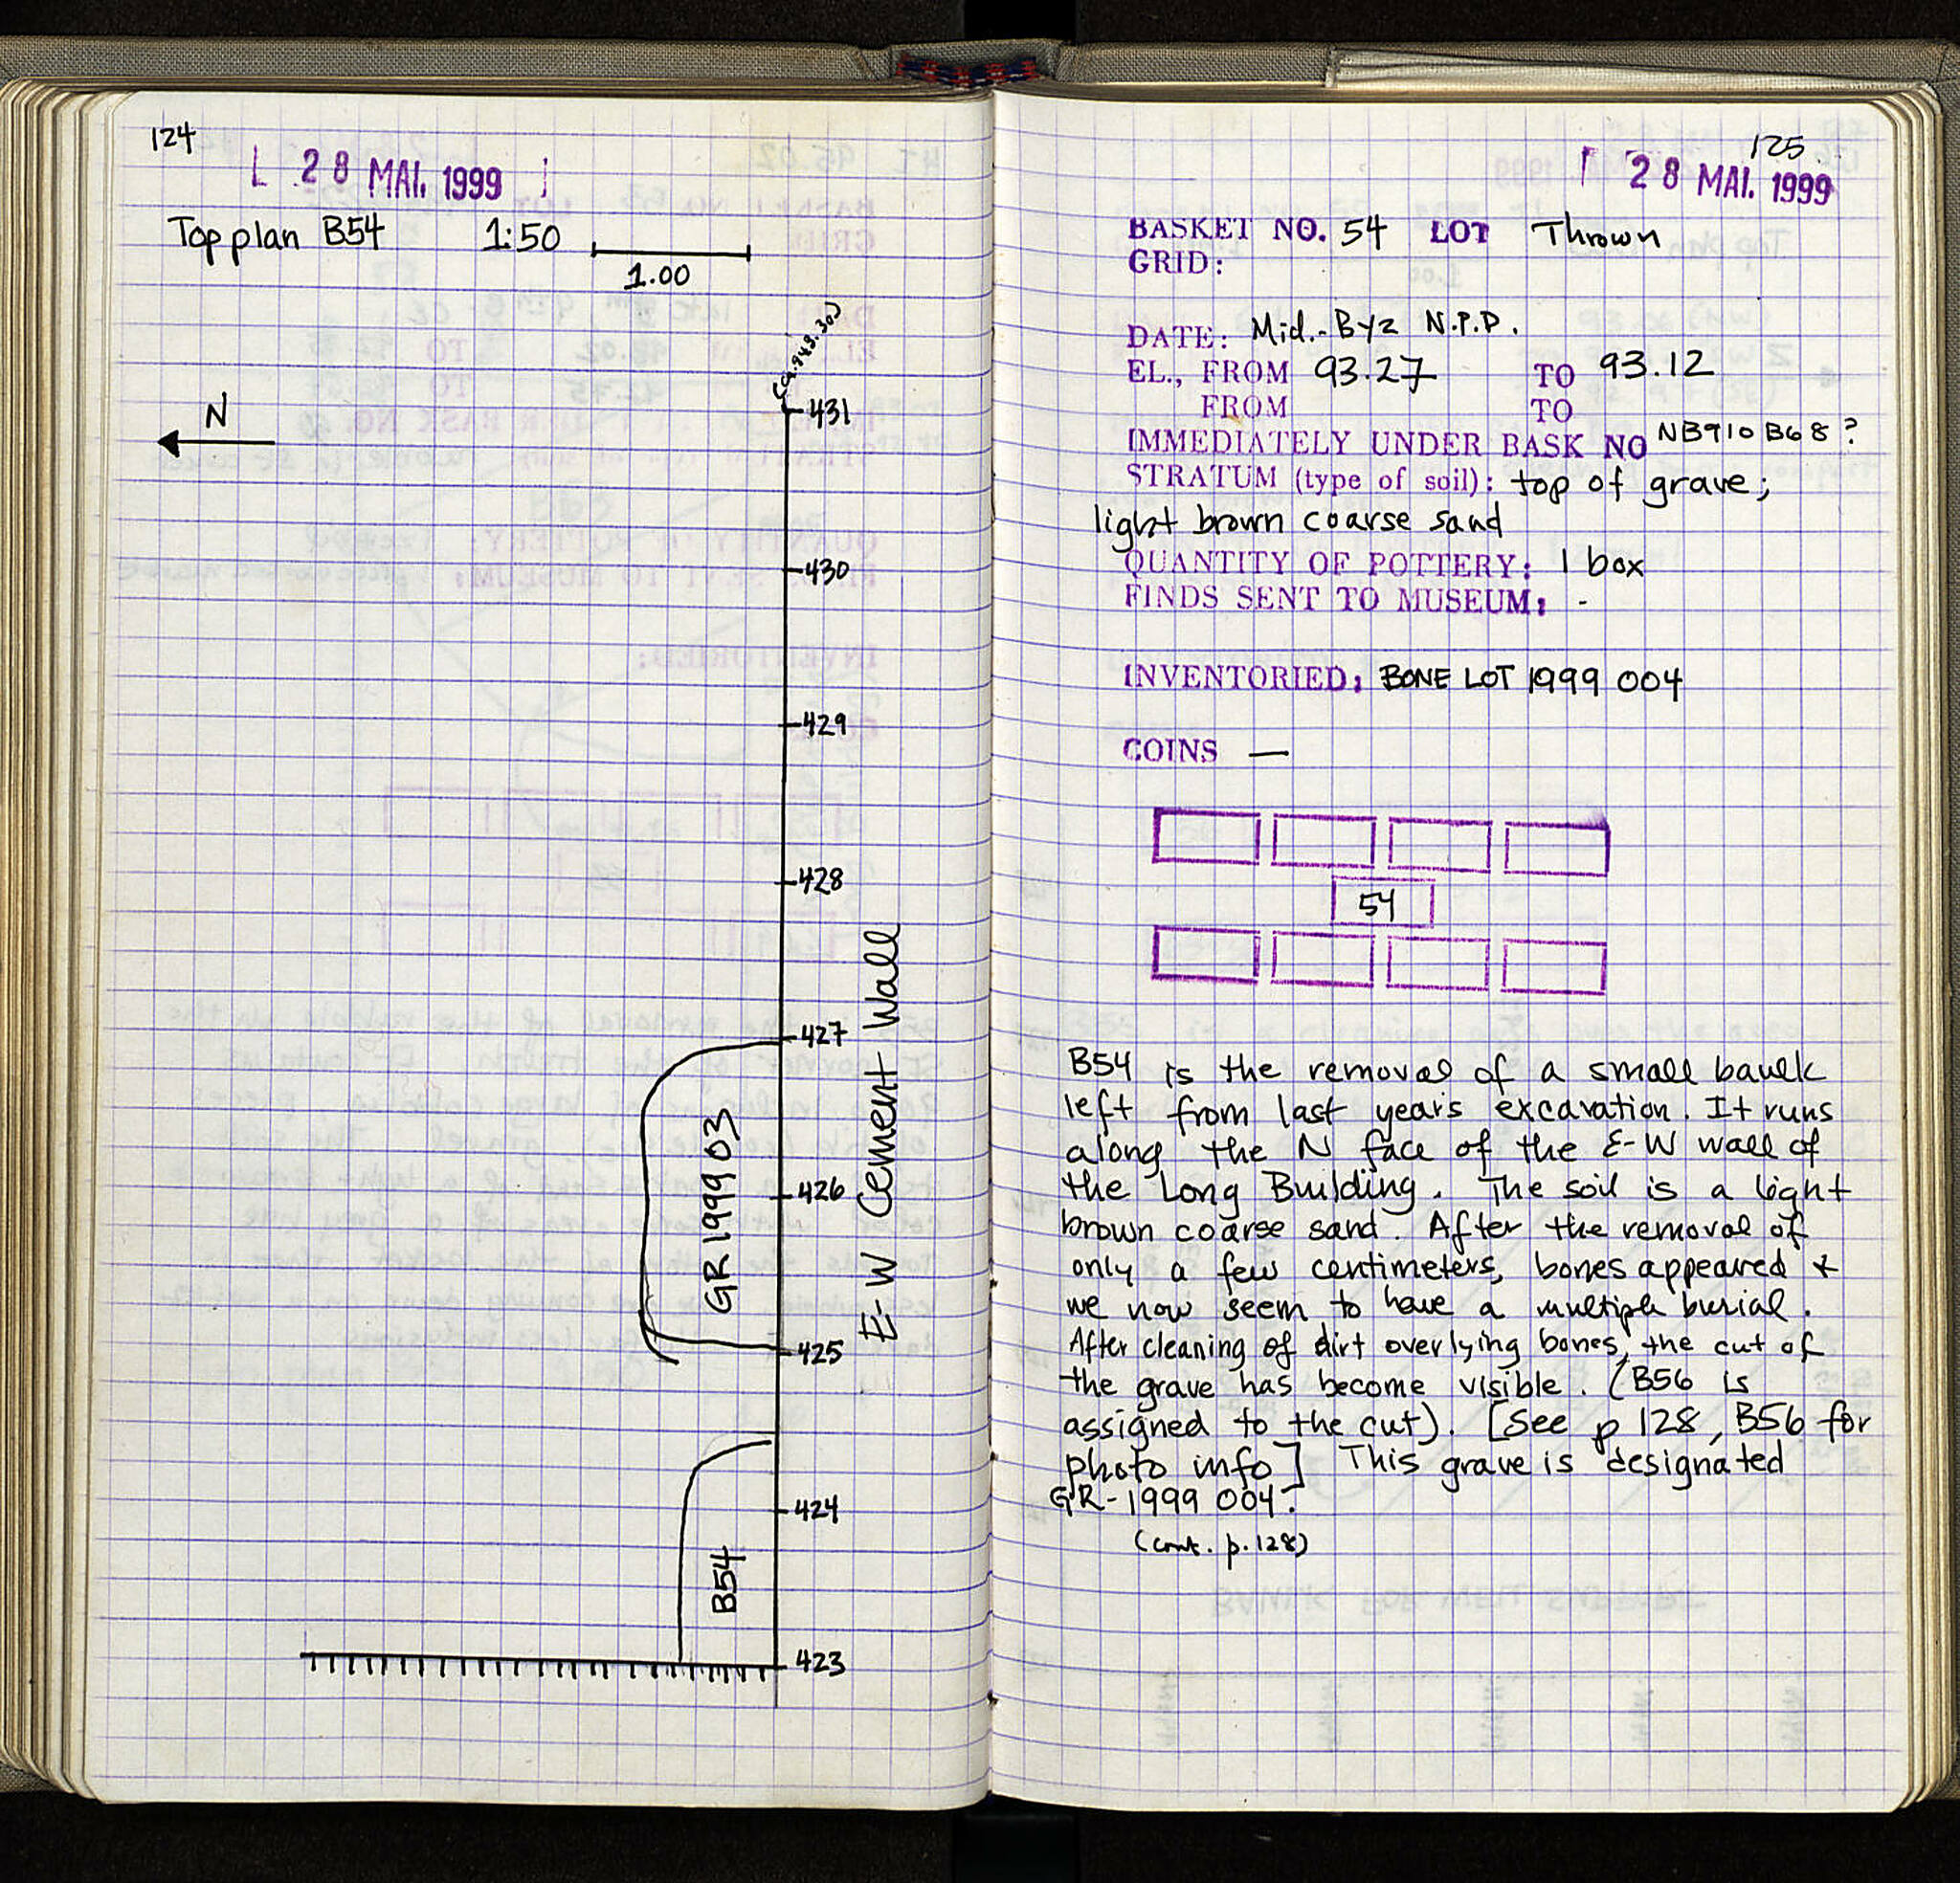 124
28 MAI. 1999
Top plan B54 1:50
1.00
N
431
430
429
428
427
426
425
424
423
GR 1999 03
E-W Cement Wall
B54
125
28 MAI. 1999
BASKET NO. 54 LOT Thrown
GRID:
DATE: Mid.-Byz N.P.D.
EL., FROM 93.27 TO 93.12
FROM TO
IMMEDIATELY UNDER BASK NO NB910 B68?
STRATUM (type of soil): top of grave;
light brown coarse sand
QUANTITY OF POTTERY: 1 box
FINDS SENT TO MUSEUM: -
INVENTORIED: BONE LOT 1999 004
COINS —
54
B54 is the removal of a small baulk
left from last years excavation. It runs
along the N face of the E-W wall of
the Long Building. The soil is a light
brown coarse sand. After the removal of
only a few centimeters, bones appeared +
we now seem to have a multiple burial.
After cleaning of dirt overlying bones, the cut of
the grave has become visible. (B56 is
assigned to the cut). [See p 128, B56 for
photo info] This grave is designated
GR-1999 004.
(cont. p. 128)